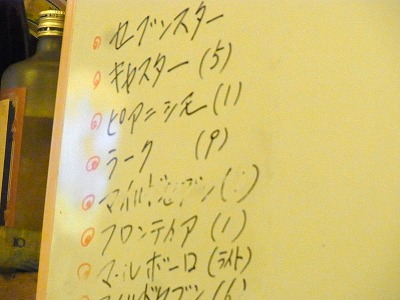 セブンスター
キャスター (5)
ピアニシモ (1)
ラーク (9)
マイルドセブン
フロンティア (1)
マールボーロ (ライト)
マイルドセブン (6)